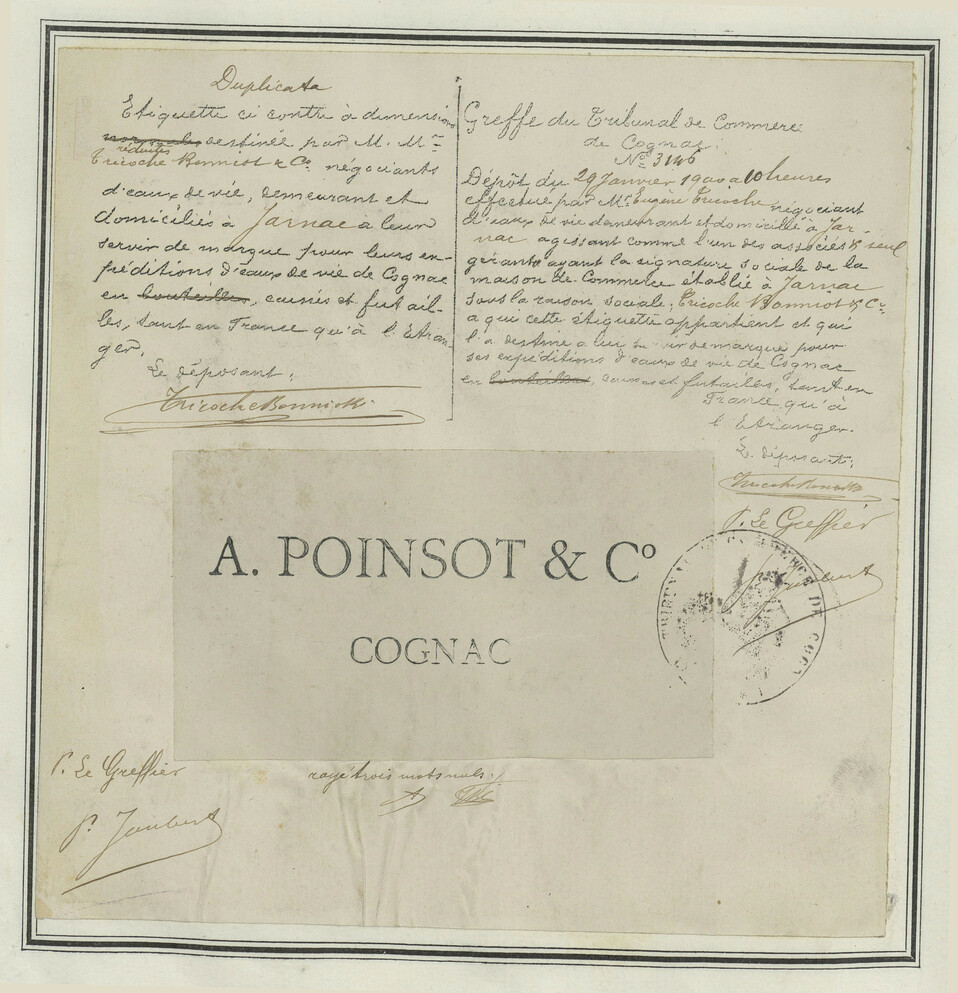 Duplicata
Etiquette ci contre à dimensions
normales destinée par M. Mrs
réduites
Tricoche Bonniot & Co négociants
d'eaux de vie, demeurant et
domiciliés à Jarnac à leur
servir de marque pour leurs ex-
péditions d'eaux de vie de Cognac
en bouteilles, caisses et futail-
les, tant en France qu'à l'Etran-
ger.
Le déposant,
Tricoche Bonniot & Co
Greffe du Tribunal de Commerce
de Cognac.
No 3146
Dépôt du 29 Janvier 1900 à 10 heures
effectué par Mr Eugène Tricoche, négociant
d'eaux de vie demeurant et domicilié à Jar-
nac agissant comme l'un des associés & seul
gérant ayant la signature sociale de la
maison de Commerce établie à Jarnac
sous la raison sociale, Tricoche Bonniot & Co.
à qui cette étiquette appartient et qui
l'a destine à lui servir de marque pour
ses expéditions d'eaux de vie de Cognac
en bouteilles, caisses et futailles, tant en
France qu'à
l'Etranger.
Le déposant,
Tricoche Bonniot & Co
P. Le Greffier
P. Joubert
TRIBUNAL DE COMMERCE DE COGNAC
A. POINSOT & Co
COGNAC
P. Le Greffier
rayé trois mots nuls.
P. Joubert